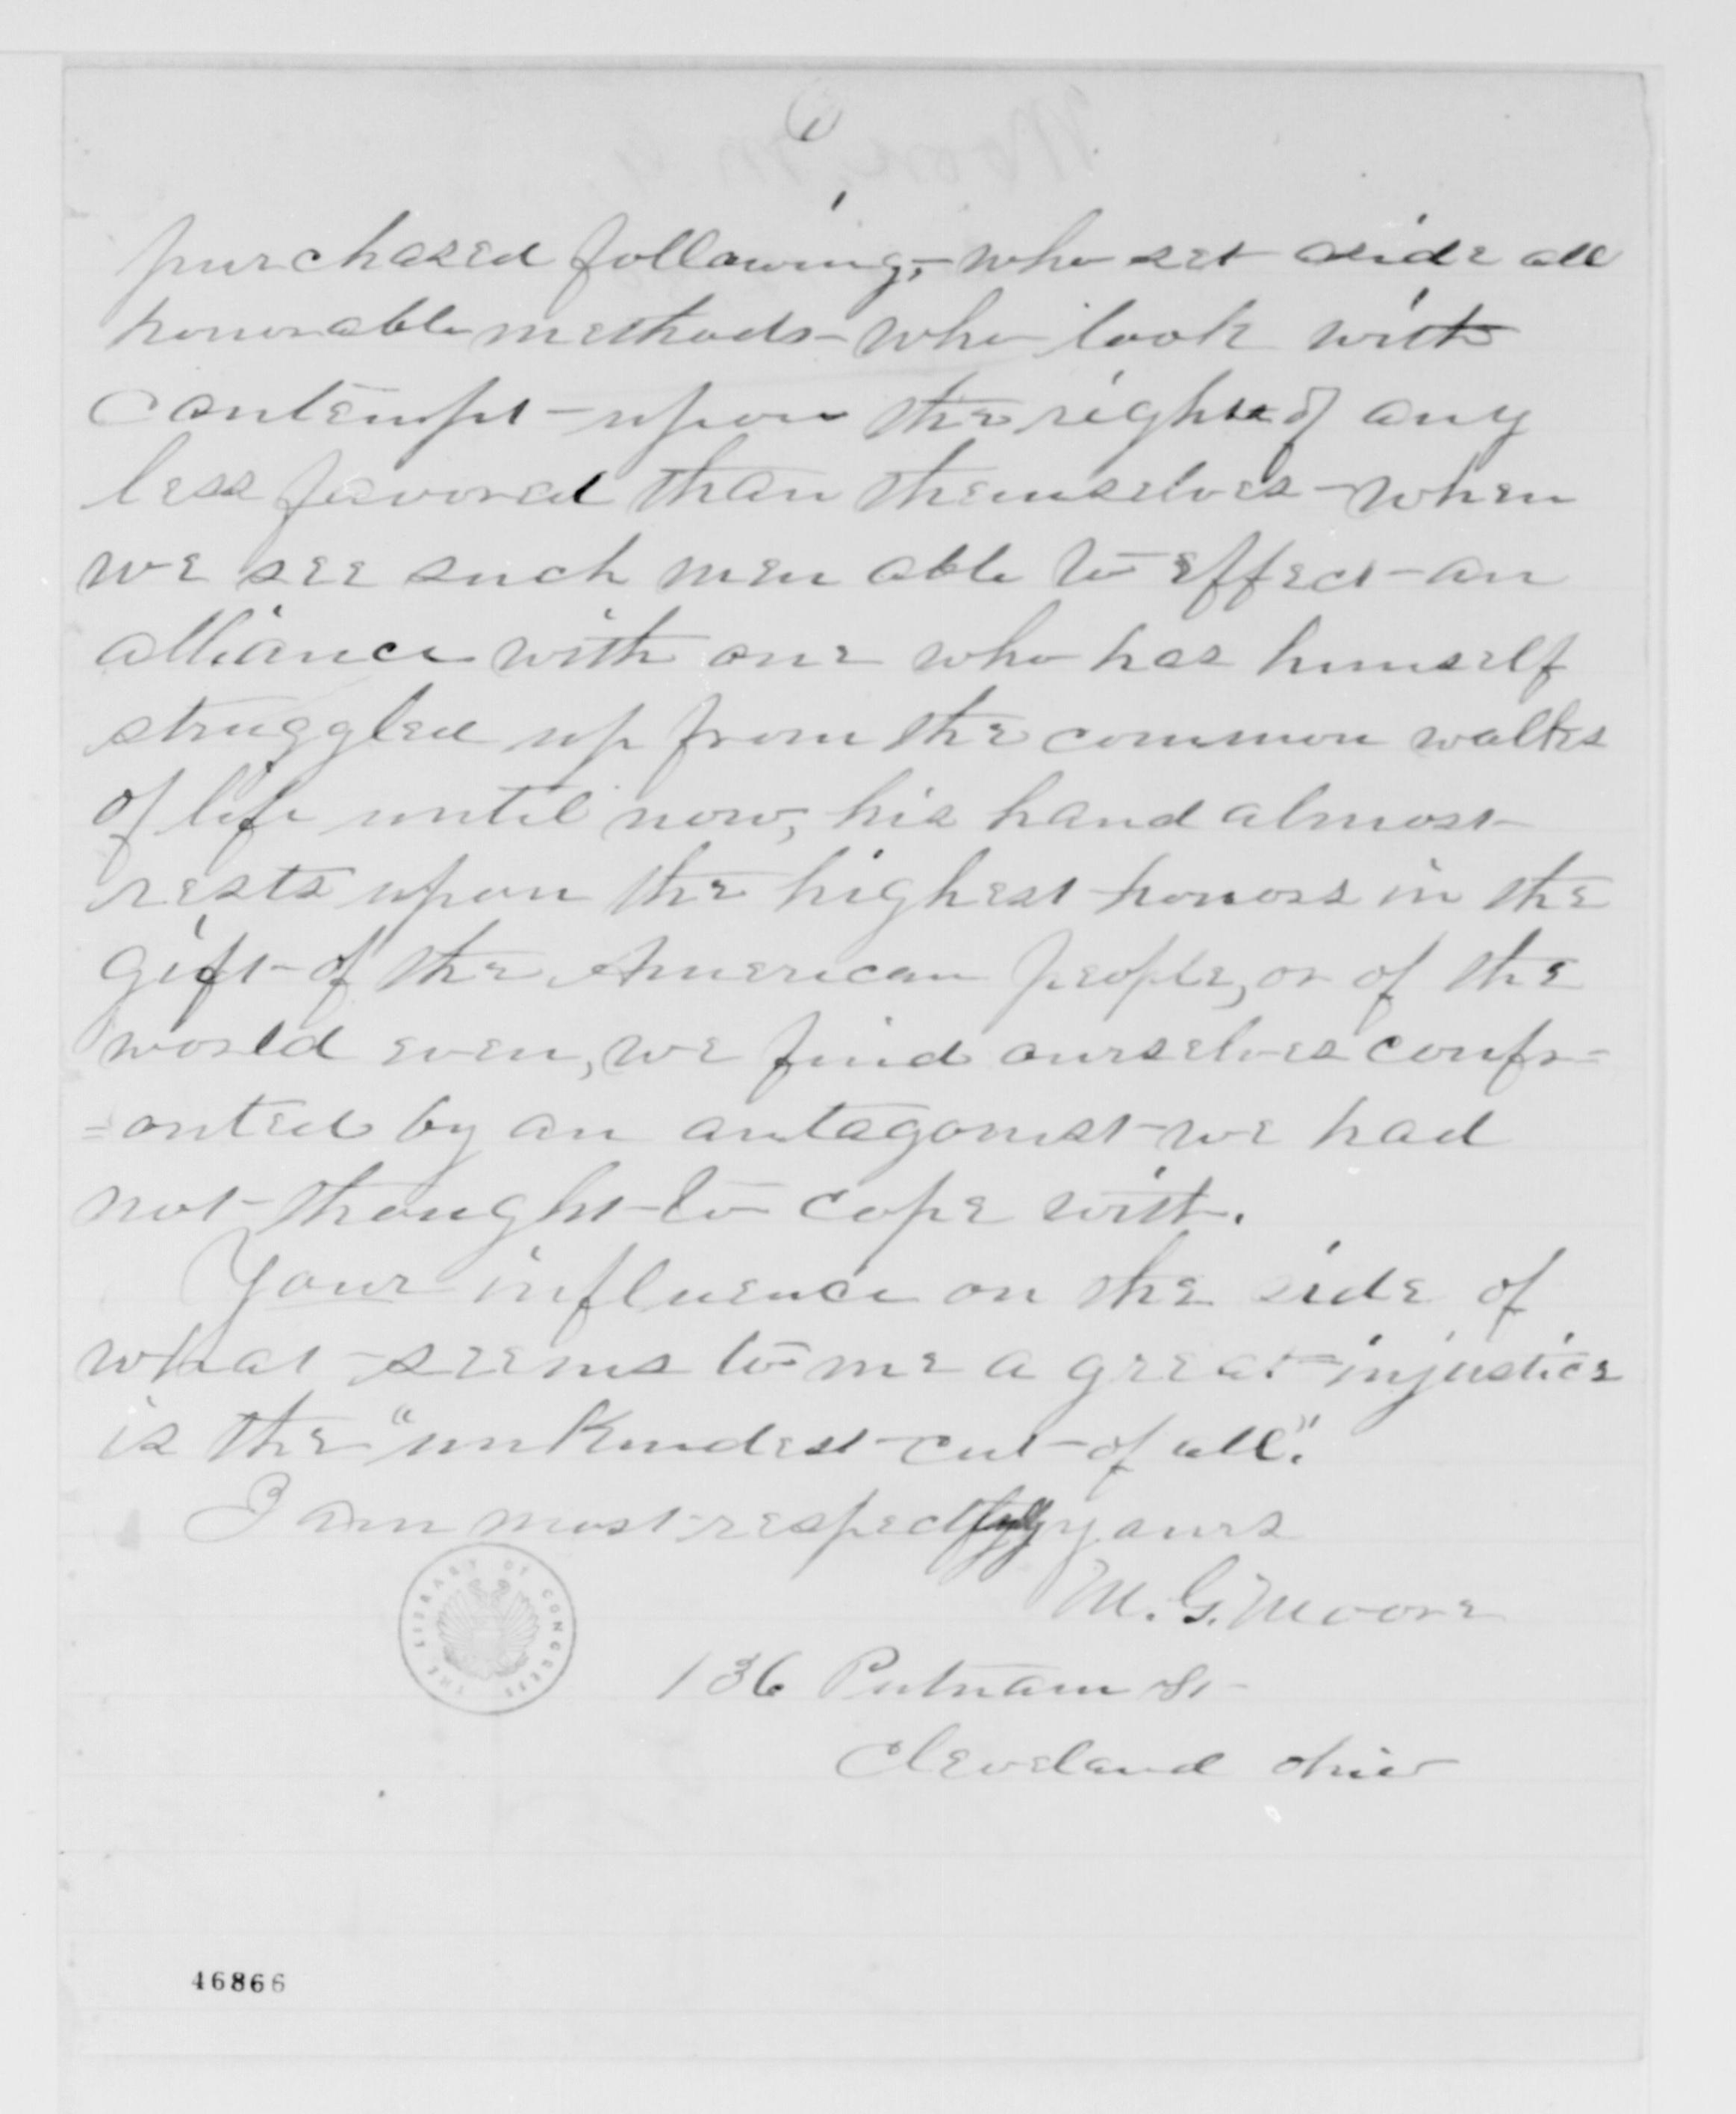 purchased following,- who set aside all
honorable methods - who look with
contempt - upon the rights of any
less favored than themselves - when
we see such men able to effect - an
alliance with one who has himself
struggled up from the common walks
of life until now, his hand almost
rests upon the highest honors in the
gift - of the American people, or of the
world even, we find ourselves confr=
=onted by an antagonist - we had
not - thought - to cope with.
Your influence on the side of
what - seems to me a great injustice
is the "unkindest - cut - of all".
I am most respectfully yours
M. G. Moore
THE LIBRARY OF CONGRESS
136 Putnam St
Cleveland Ohio
46866